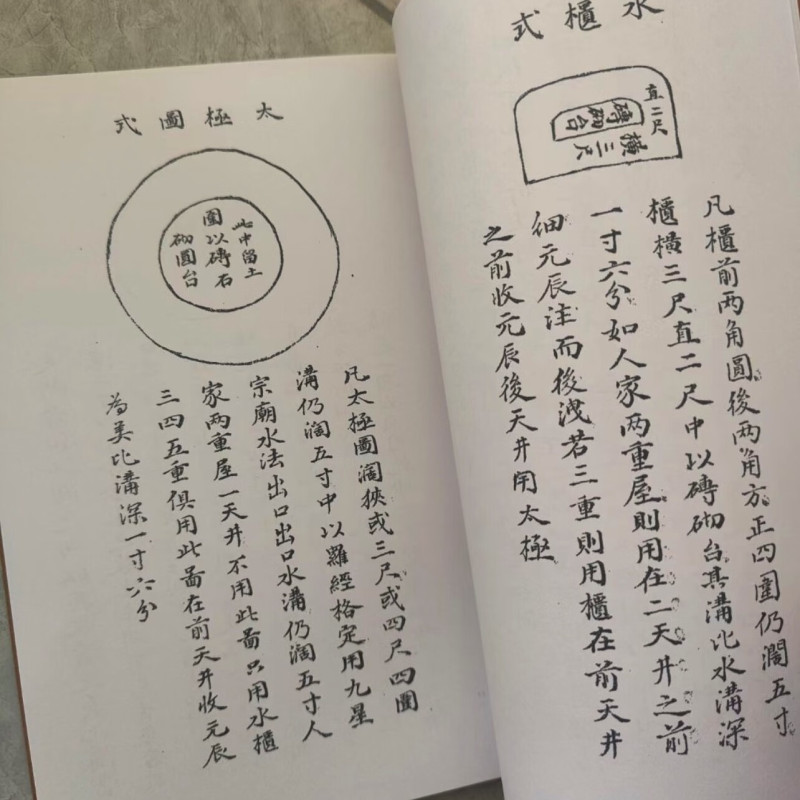 水櫃式
直二尺
磚砌台
橫三尺
凡櫃前两角圓後两角方正四圍仍濶五寸
櫃橫三尺直二尺中以磚砌台其溝比水溝深
一寸六分如人家两重屋則用在二天井之前
細元辰注而後洩若三重則用櫃在前天井
之前收元辰後天井用太極
太極圖式
此中留土
圍以磚石
砌圓台
凡太極圖濶狹或三尺或四尺四圍
溝仍濶五寸中以羅經格定用九星
宗廟水法出口出口水溝仍濶五寸人
家两重屋一天井不用此啚只用水櫃
三四五重俱用此啚在前天井收元辰
為美比溝深一寸六分